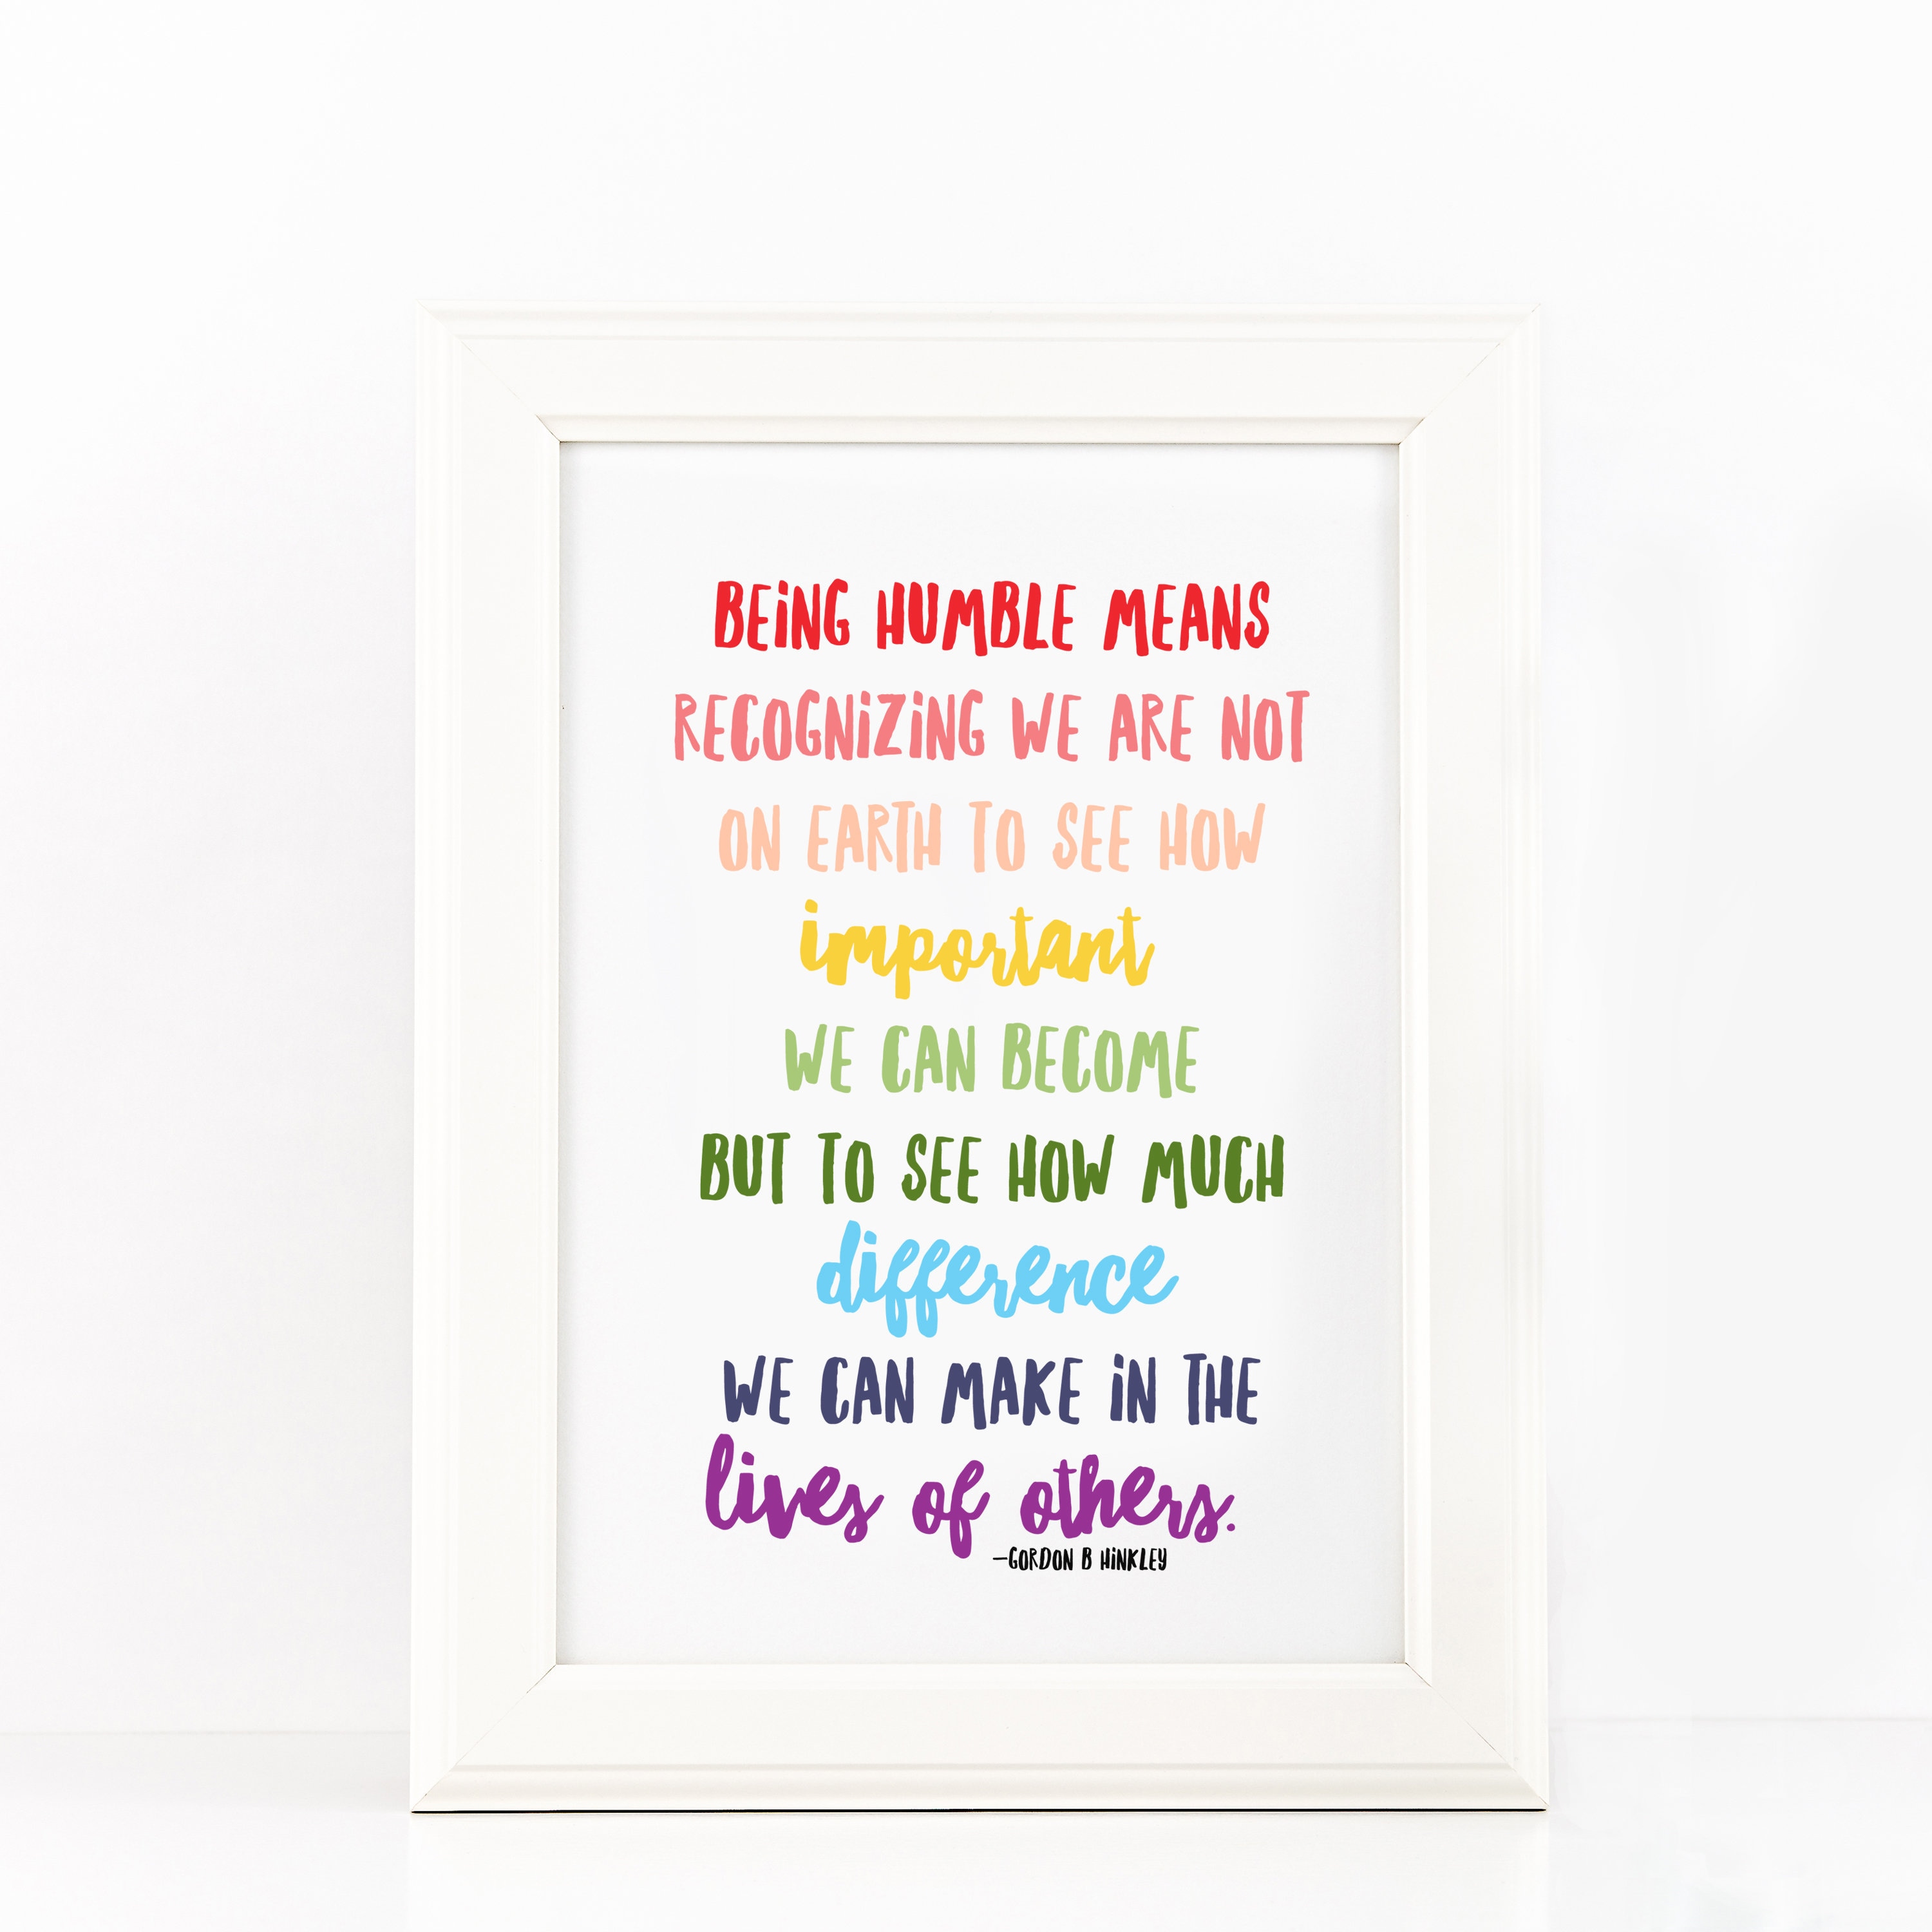 BEING HUMBLE MEANS
RECOGNIZING WE ARE NOT
ON EARTH TO SEE HOW
important
WE CAN BECOME
BUT TO SEE HOW MUCH
difference
WE CAN MAKE IN THE
lives of others.
—GORDON B HINKLEY